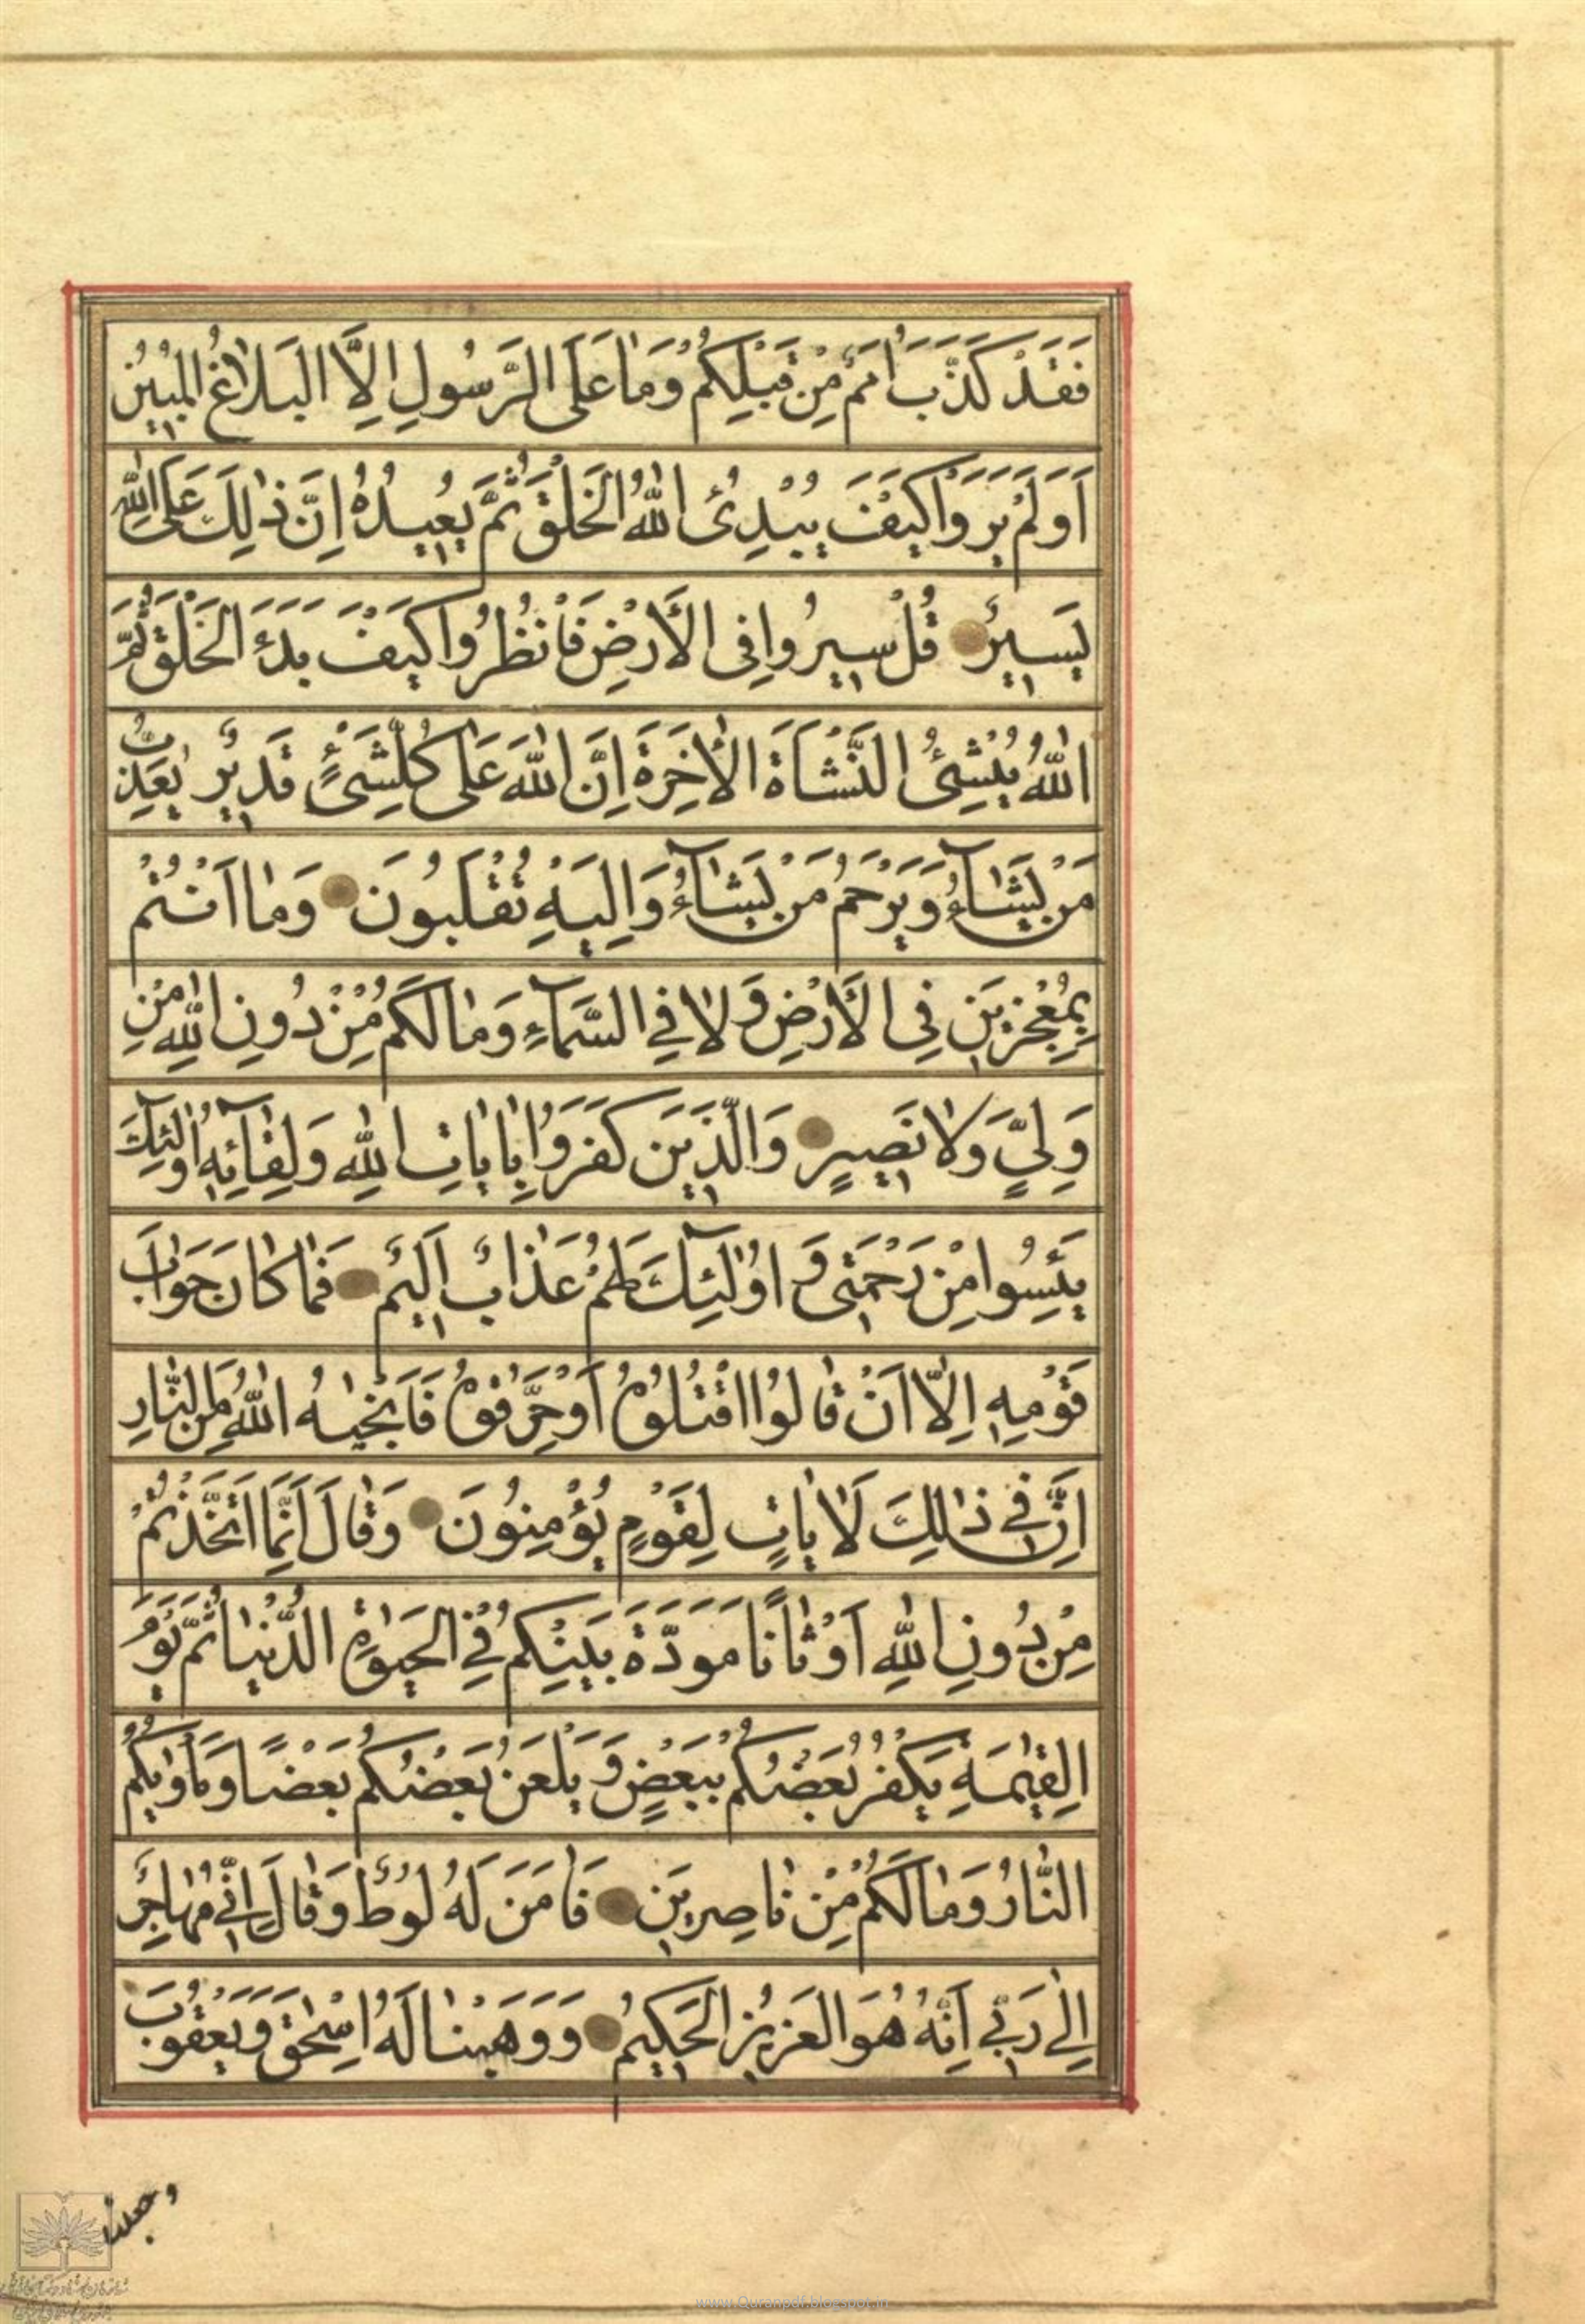 فَقَدْ كَذَّبَ اُمَمٌ مِنْ قَبْلِكُمْ وَمٰا عَلَى الرَّسُولِ اِلَّا الْبَلٰاغُ الْمُبٖينُ
اَوَلَمْ يَرَوْا كَيْفَ يُبْدِئُ اللّٰهُ الْخَلْقَ ثُمَّ يُعٖيدُهُ اِنَّ ذٰلِكَ عَلَى اللّٰهِ
يَسٖيرٌ قُلْ سٖيرُوا فِى الْاَرْضِ فَانْظُرُوا كَيْفَ بَدَءَ الْخَلْقَ ثُمَّ
اللّٰهُ يُنْشِئُ النَّشْاَةَ الْاٰخِرَةَ اِنَّ اللّٰهَ عَلٰى كُلِّشَىْءٍ قَدٖيرٌ يُعَذِّبُ
مَنْ يَشٰآءُ وَيَرْحَمُ مَنْ يَشٰآءُ وَاِلَيْهِ تُقْلَبُونَ وَمٰا اَنْتُمْ
بِمُعْجِزٖينَ فِى الْاَرْضِ وَلٰا فِي السَّمٰآءِ وَمٰا لَكُمْ مِنْ دُونِ اللّٰهِ مِنْ
وَلِيٍّ وَلٰا نَصٖيرٍ وَالَّذٖينَ كَفَرُوا بِاٰيٰاتِ اللّٰهِ وَلِقٰآئِهٖ اُولٰٓئِكَ
يَئِسُوا مِنْ رَحْمَتٖى وَ اُولٰٓئِكَ لَهُمْ عَذٰابٌ اَلٖيمٌ فَمٰا كٰانَ جَوٰابَ
قَوْمِهٖ اِلّٰا اَنْ قٰالُوا اقْتُلُوهُ اَوْ حَرِّقُوهُ فَاَنْجٰيهُ اللّٰهُ مِنَ النّٰارِ
اِنَّ فٖي ذٰالِكَ لَاٰيٰاتٍ لِقَوْمٍ يُؤْمِنُونَ وَقٰالَ اِنَّمَا اتَّخَذْتُمْ
مِنْ دُونِ اللّٰهِ اَوْثٰانًا مَوَدَّةَ بَيْنِكُمْ فِي الْحَيٰوةِ الدُّنْيٰا ثُمَّ يَوْمَ
الْقِيٰمَةِ يَكْفُرُ بَعْضُكُمْ بِبَعْضٍ وَ يَلْعَنُ بَعْضُكُمْ بَعْضًا وَمَاْوٰيكُمُ
النّٰارُ وَمٰا لَكُمْ مِنْ نٰاصِرٖينَ فَاٰمَنَ لَهُ لُوطٌ وَقٰالَ اِنّٖي مُهٰاجِرٌ
اِلٰي رَبّٖي اِنَّهُ هُوَ الْعَزٖيزُ الْحَكٖيمُ وَوَهَبْنٰا لَهُ اِسْحٰقَ وَيَعْقُوبَ
وجعلنا
www.Quranpdf.blogspot.in